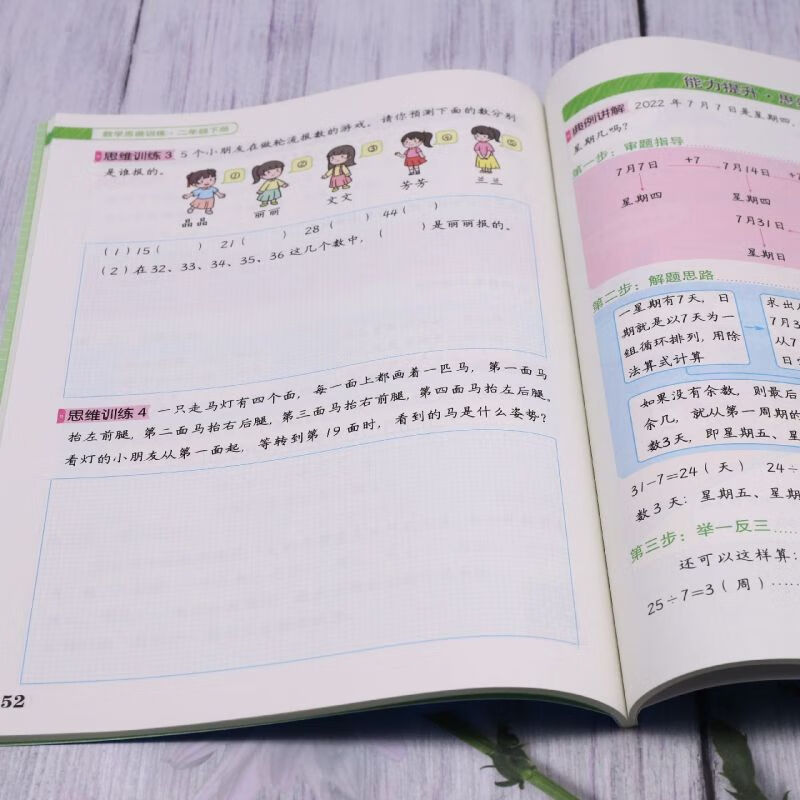 数学思维训练·二年级下册
思维训练3 5个小朋友在做轮流报数的游戏，请你预测下面的数分别
是谁报的。
① ② ③ ④ ⑤
晶晶 丽丽 文文 芳芳 兰兰
(1) 15( ) 21( ) 28( ) 44( )
(2) 在32、33、34、35、36这几个数中，( )是丽丽报的。
思维训练4 一只走马灯有四个面，每一面上都画着一匹马，第一面马
抬左前腿，第二面马抬右后腿，第三面马抬右前腿，第四面马抬左后腿。
看灯的小朋友从第一面起，等转到第19面时，看到的马是什么姿势？
52
能力提升·思
典例讲解 2022年7月7日是星期四，
星期几吗？
第一步：审题指导
7月7日 +7 7月14日 +7
星期四 星期四
7月31日
星期日
第二步：解题思路
一星期有7天，日
期就是以7天为一
组循环排列，用除
法算式计算
求出从
7月3
从7
日
如果没有余数，则最后
余几，就从第一周期的
数3天，即星期五、星
31-7=24（天） 24÷
数3天：星期五、星期
第三步：举一反三
还可以这样算：
25÷7=3（周）……